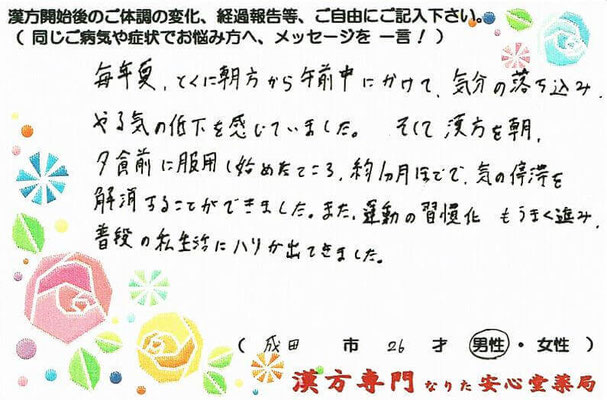 漢方開始後のご体調の変化、経過報告等、ご自由にご記入下さい。
（ 同じご病気や症状でお悩み方へ、メッセージを 一言！）
毎年夏、とくに朝方から午前中にかけて、気分の落ち込み、
やる気の低下を感じていました。 そして漢方を朝、
夕食前に服用し始めたところ、約1カ月ほどで、気の停滞を
解消することができました。また、運動の習慣化 もうまく進み、
普段の私生活にハリが出てきました。
（ 成田 市 26 才 男性・女性 ）
漢方専門 なりた 安心堂薬局